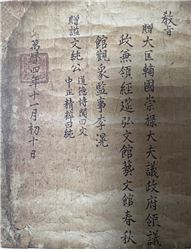 敎旨
贈大匡輔國崇祿大夫議政府領議
政兼領經筵弘文館藝文館春秋
館觀象監事李滉
贈諡文純公 道德博聞曰文
中正精粹曰純
萬曆四年十一月初十日